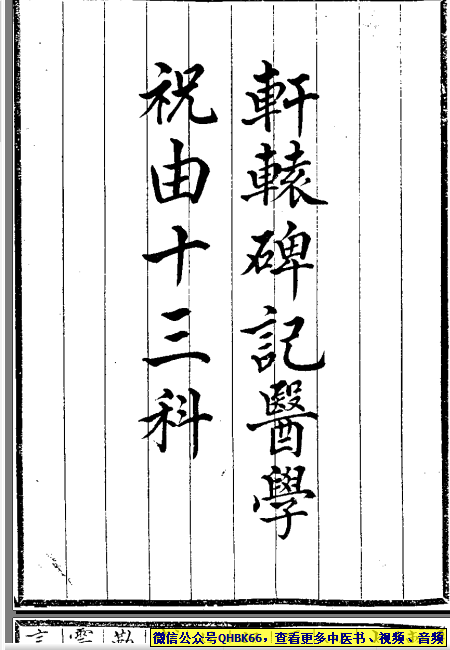 軒轅碑記醫學
祝由十三科
微信公众号QHBK66，查看更多中医书、视频、音频